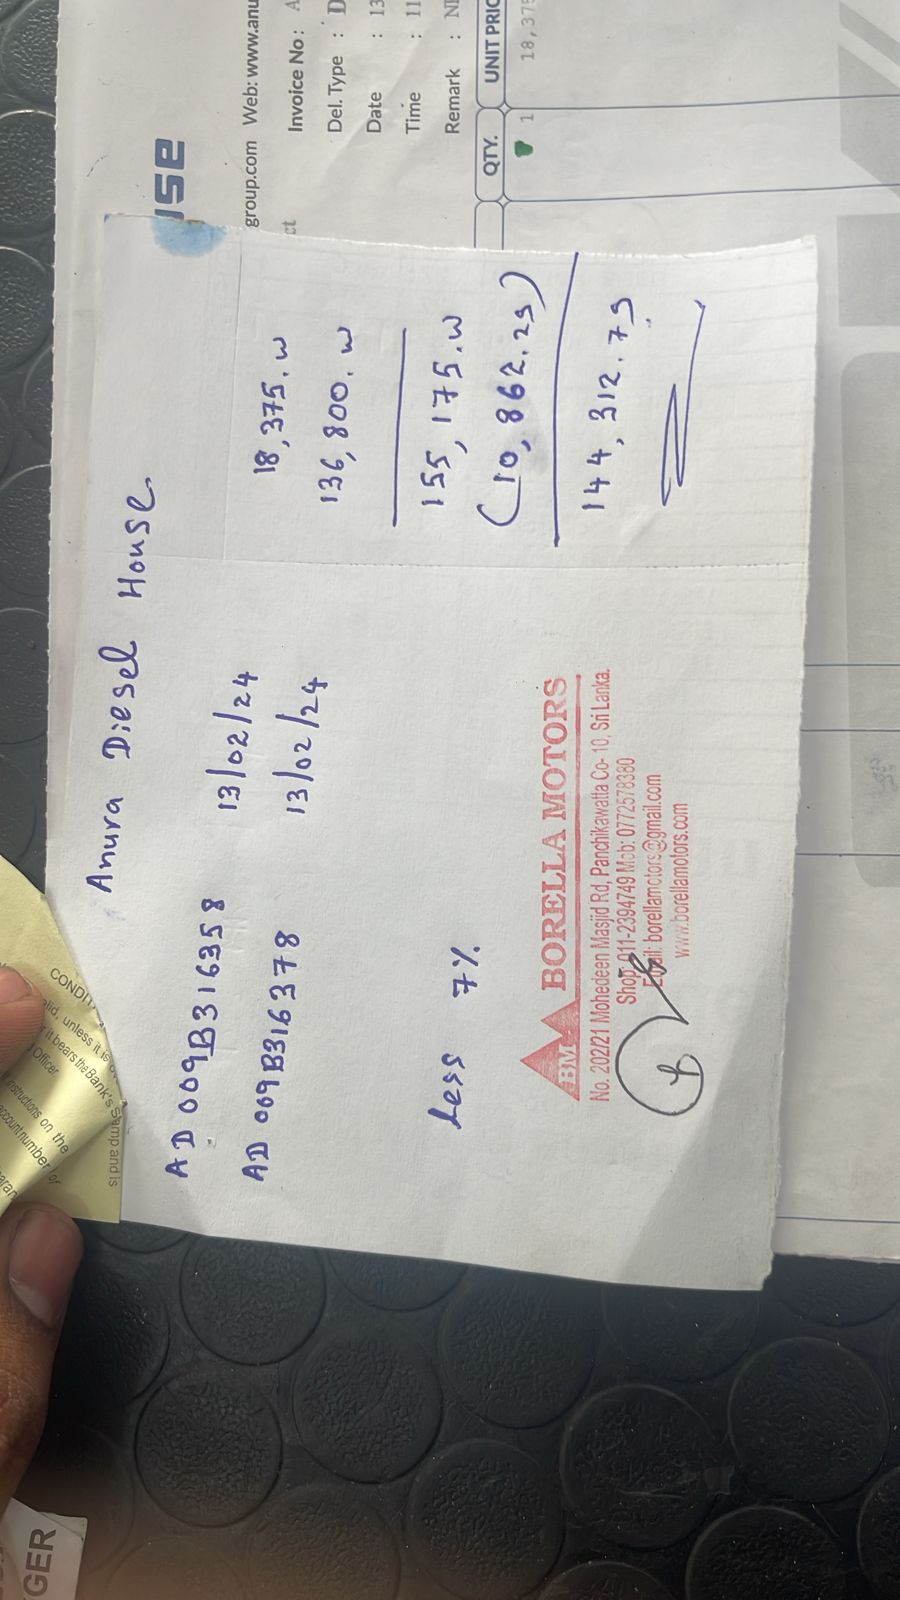 Anura Diesel House
AD 009B316358 13/02/24 18,375.w
AD 009B316378 13/02/24 136,800.w
155,175.w
Less 7% (10,862.25)
144,312.75
BM BORELLA MOTORS
No. 202/21 Mohedeen Masjid Rd, Panchikawatta Co- 10, Sri Lanka.
Shop: 011-2394749 Mob: 0772578380
Email: borellamotors@gmail.com
www.borellamotors.com
USE
group.com Web: www.anu
ct Invoice No : A
Del. Type : D
Date : 13
Time : 11
Remark : NI
QTY. UNIT PRIC
1 18,375
CONDIT
alid, unless it is
r it bears the Bank's Stamp and is
Officer
instructions on the
account number of
GER